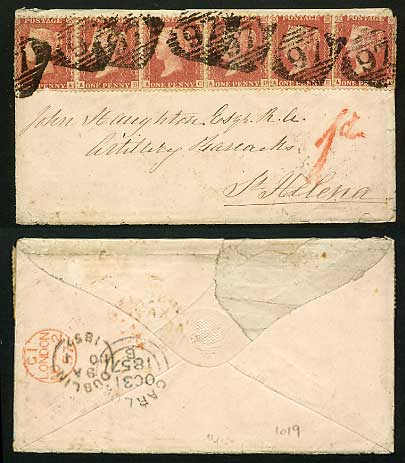 POSTAGE POSTAGE POSTAGE POSTAGE POSTAGE POSTAGE
97 97 97 97 97 97
ONE PENNY ONE PENNY ONE PENNY ONE PENNY ONE PENNY ONE PENNY
John Haughton Esqr. R.A.
Artillery Barracks
1d
St Helena
LONDON
DUBLIN
1857
CARL
OC31
1857
1019